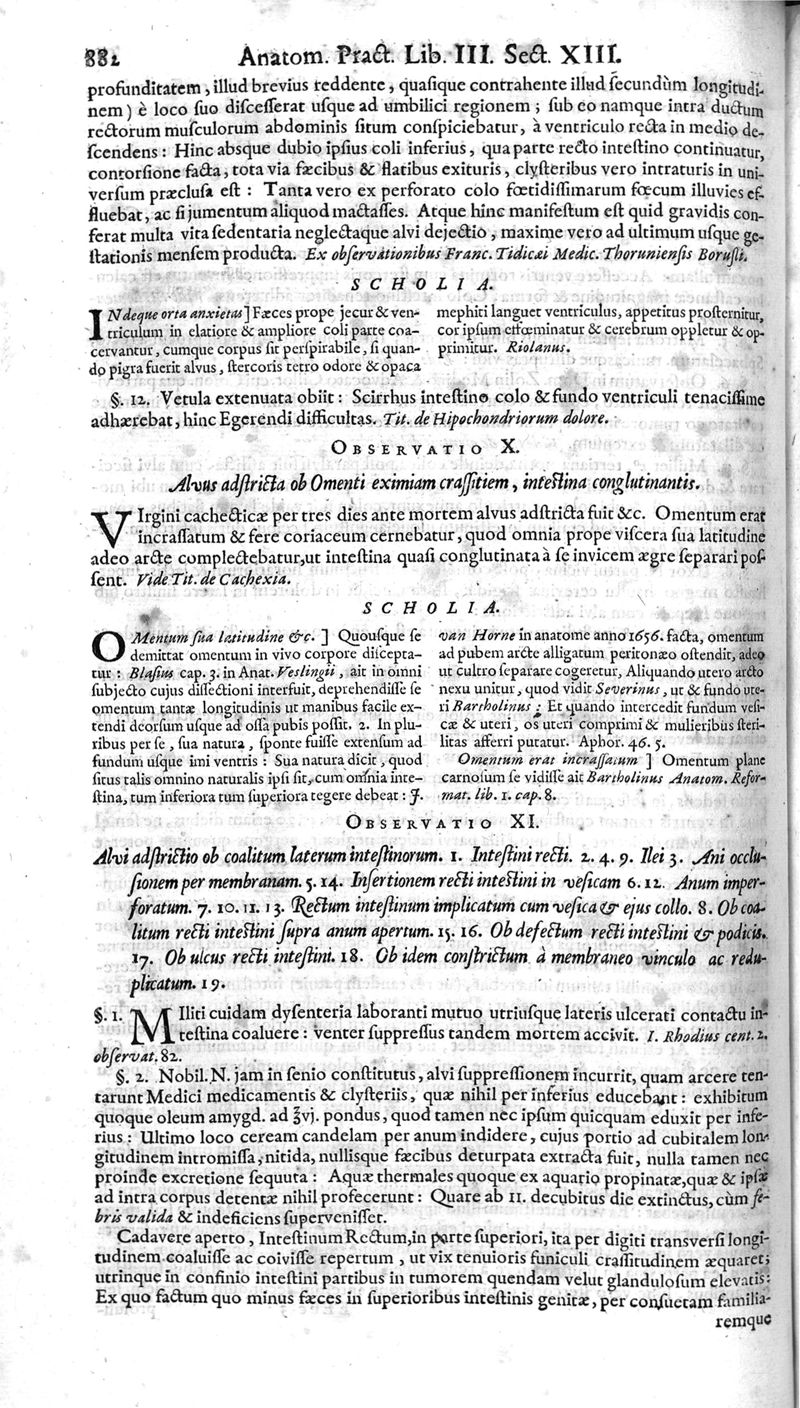 882 Anatom. Pract. Lib. III. Sect. XIII.
profunditatem, illud brevius reddente, quaſique contrahente illud ſecundùm longitudi-
nem) è loco ſuo diſceſſerat uſque ad umbilici regionem; ſub eo namque intra ductum
rectorum muſculorum abdominis ſitum conſpiciebatur, à ventriculo recta in medio de-
ſcendens: Hinc absque dubio ipſius coli inferius, qua parte recto inteſtino continuatur,
contorſione facta, tota via fæcibus & flatibus exituris, clyſteribus vero intraturis in uni-
verſum præcluſa eſt: Tanta vero ex perforato colo fœtidiſſimarum fœcum illuvies ef-
fluebat, ac ſi jumentum aliquod mactaſſes. Atque hinc manifeſtum eſt quid gravidis con-
ferat multa vita ſedentaria neglectaque alvi dejectio, maxime vero ad ultimum uſque ge-
ſtationis menſem producta. Ex obſervationibus Franc. Tidicæi Medic. Thorunienſis Boruſſi.
SCHOLIA.
INdeque orta anxietas] Fæces prope jecur & ven-
triculum in elatiore & ampliore coli parte coa-
cervantur, cumque corpus ſit perſpirabile, ſi quan-
do pigra fuerit alvus, ſtercoris tetro odore & opaca
mephiti languet ventriculus, appetitus proſternitur,
cor ipſum effœminatur & cerebrum oppletur & op-
primitur. Riolanus.
§. 12. Vetula extenuata obiit: Scirrhus inteſtino colo & fundo ventriculi tenaciſſime
adhærebat, hinc Egerendi difficultas. Tit. de Hipochondriorum dolore.
OBSERVATIO X.
Alvus adſtricta ob Omenti eximiam craſſitiem, inteſtina conglutinantis.
VIrgini cachecticæ per tres dies ante mortem alvus adſtricta fuit &c. Omentum erat
incraſſatum & fere coriaceum cernebatur, quod omnia prope viſcera ſua latitudine
adeo arcte complectebatur, ut inteſtina quaſi conglutinata à ſe invicem ægre ſeparari poſ-
ſent. Vide Tit. de Cachexia.
SCHOLIA.
OMentum ſua latitudine &c. ] Quouſque ſe
demittat omentum in vivo corpore diſcepta-
tur: Blaſius cap. 3. in Anat. Veslingii, ait in omni
ſubjecto cujus diſſectioni interfuit, deprehendiſſe ſe
omentum tantæ longitudinis ut manibus facile ex-
tendi deorſum uſque ad oſſa pubis poſſit. 2. In plu-
ribus per ſe, ſua natura, ſponte fuiſſe extenſum ad
fundum uſque imi ventris: Sua natura dicit, quod
ſitus talis omnino naturalis ipſi ſit, cum omnia inte-
ſtina, tum inferiora tum ſuperiora tegere debeat: J.
van Horne in anatome anno 1656. facta, omentum
ad pubem arcte alligatum peritonæo oſtendit, adeo
ut cultro ſeparare cogeretur, Aliquando utero arcto
nexu unitur, quod vidit Severinus, ut & fundo ute-
ri Bartholinus; Et quando intercedit fundum veſi-
cæ & uteri, os uteri comprimi & mulieribus ſteri-
litas afferri putatur. Aphor. 46. 5.
Omentum erat incraſſatum ] Omentum plane
carnoſum ſe vidiſſe ait Bartholinus Anatom. Refor-
mat. lib. 1. cap. 8.
OBSERVATIO XI.
Alvi adſtrictio ob coalitum laterum inteſtinorum. 1. Inteſtini recti. 2. 4. 9. Ilei 3. Ani occlu-
ſionem per membranam. 5. 14. Inſertionem recti inteſtini in veſicam 6. 12. Anum imper-
foratum. 7. 10. 11. 13. Rectum inteſtinum implicatum cum veſica & ejus collo. 8. Ob coa-
litum recti inteſtini ſupra anum apertum. 15. 16. Ob defectum recti inteſtini & podicis.
17. Ob ulcus recti inteſtini. 18. Ob idem conſtrictum à membraneo vinculo ac redu-
plicatum. 19.
§. 1. MIliti cuidam dyſenteria laboranti mutuo utriuſque lateris ulcerati contactu in-
teſtina coaluere: venter ſuppreſſus tandem mortem accivit. I. Rhodius cent. 2.
obſervat. 82.
§. 2. Nobil. N. jam in ſenio conſtitutus, alvi ſuppreſſionem incurrit, quam arcere ten-
tarunt Medici medicamentis & clyſteriis, quæ nihil per inferius educebant: exhibitum
quoque oleum amygd. ad ℥vj. pondus, quod tamen nec ipſum quicquam eduxit per infe-
rius: Ultimo loco ceream candelam per anum indidere, cujus portio ad cubitalem lon-
gitudinem intromiſſa, nitida, nullisque fæcibus deturpata extracta fuit, nulla tamen nec
proinde excretione ſequuta: Aquæ thermales quoque ex aquario propinatæ, quæ & ipſæ
ad intra corpus detentæ nihil profecerunt: Quare ab 11. decubitus die extinctus, cùm fe-
bris valida & indeficiens ſuperveniſſet.
Cadavere aperto, Inteſtinum Rectum, in parte ſuperiori, ita per digiti transverſi longi-
tudinem coaluiſſe ac coiviſſe repertum, ut vix tenuioris funiculi craſſitudinem æquaret;
utrinque in confinio inteſtini partibus in tumorem quendam velut glanduloſum elevatis:
Ex quo factum quo minus fæces in ſuperioribus inteſtinis genitæ, per conſuetam familia-
remque